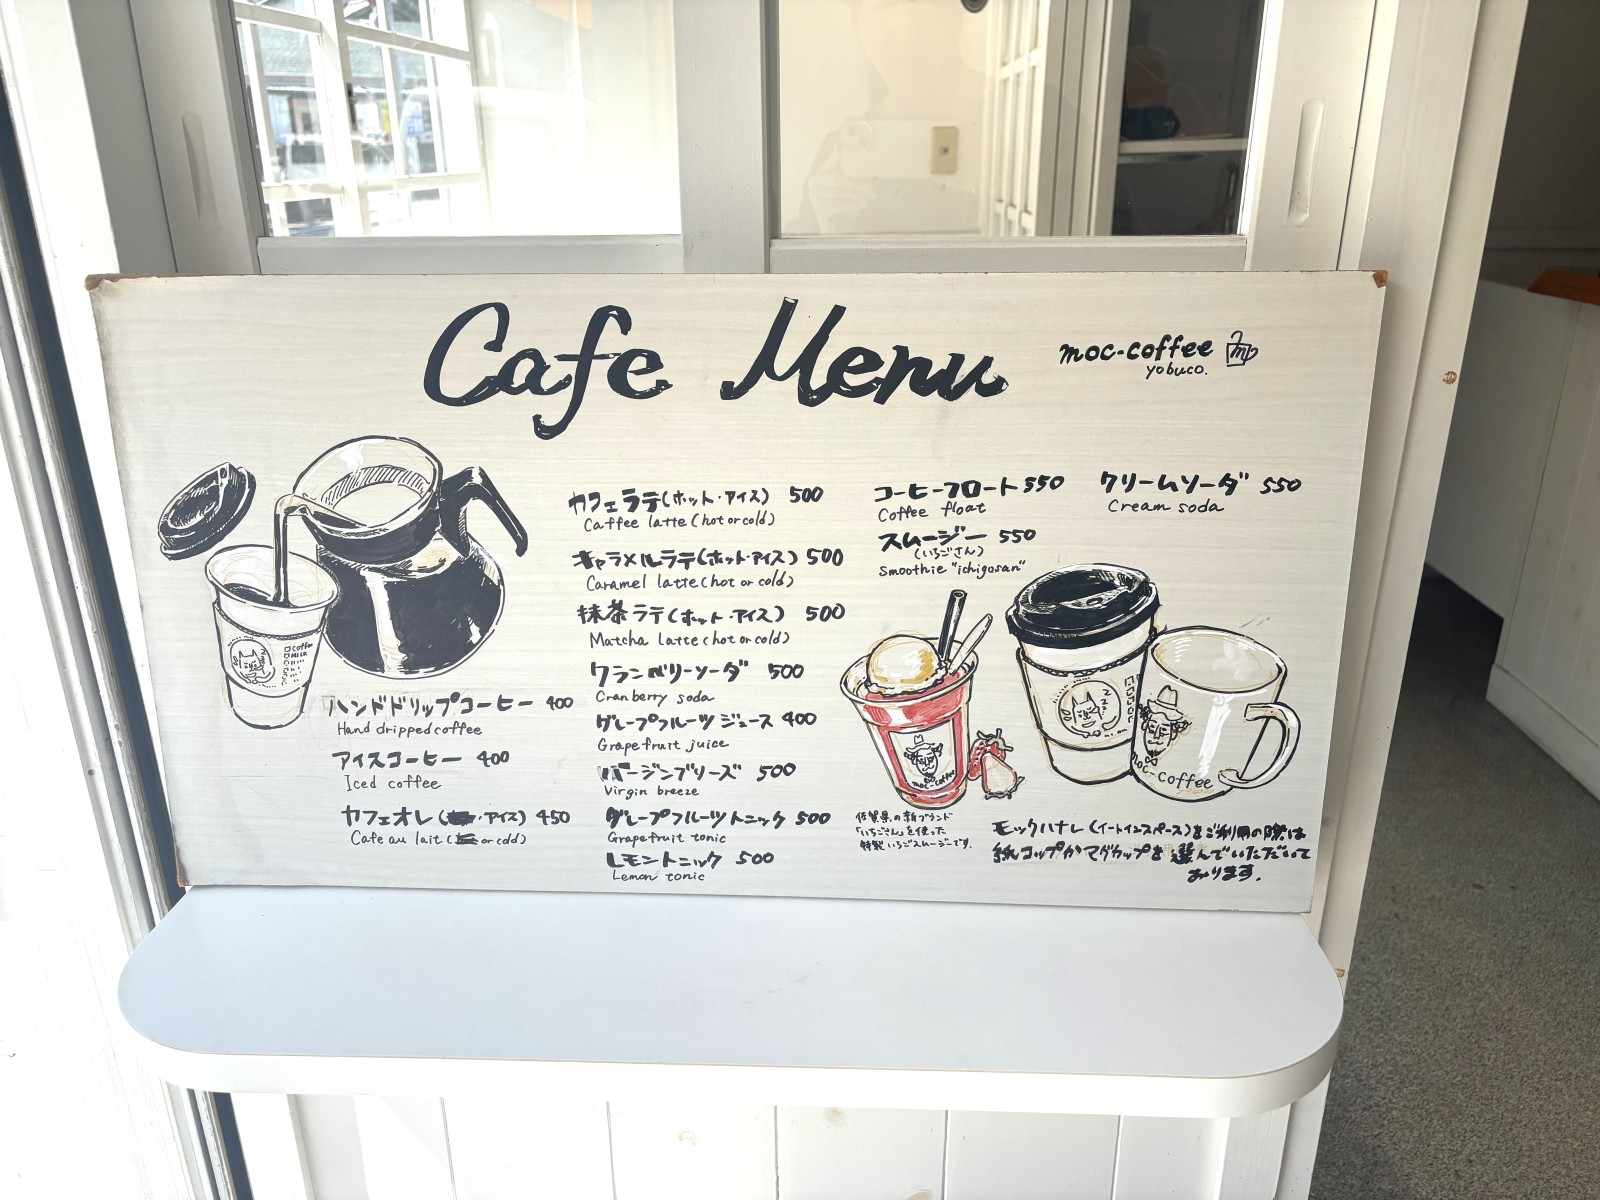 Cafe Menu
moc-coffee
yobuco.
ハンドドリップコーヒー 400
Hand dripped coffee
アイスコーヒー 400
Iced coffee
カフェオレ( ・アイス) 450
Cafe au lait ( or cold)
カフェラテ(ホット・アイス) 500
Caffee latte (hot or cold)
キャラメルラテ(ホット・アイス) 500
Caramel latte (hot or cold)
抹茶ラテ(ホット・アイス) 500
Matcha Latte (hot or cold)
クランベリーソーダ 500
Cranberry soda
グレープフルーツジュース 400
Grapefruit juice
バージンブリーズ 500
Virgin breeze
グレープフルーツトニック 500
Grapefruit tonic
レモントニック 500
Lemon tonic
コーヒーフロート 550
Coffee float
スムージー 550
(いちごさん)
Smoothie "ichigosan"
クリームソーダ 550
Cream soda
佐賀県の新ブランド
「いちごさん」を使った
特製いちごスムージーです。
モックハナレ(イートインスペース)をご利用の際は
紙コップかマグカップを選んでいただいて
おります。
coffee
MILK
moc-coffee
moc-coffee